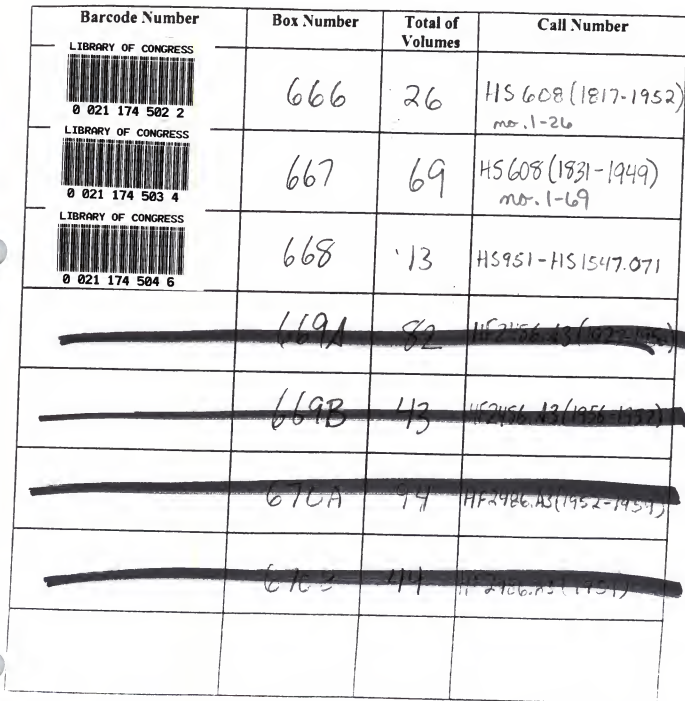 Barcode Number Box Number Total of Volumes Call Number
LIBRARY OF CONGRESS
0 021 174 502 2
666 26 HS 608 (1817-1952)
no. 1-26
LIBRARY OF CONGRESS
0 021 174 503 4
667 69 HS 608 (1831-1949)
no. 1-69
LIBRARY OF CONGRESS
0 021 174 504 6
668 13 HS951-HS1547.071
669A 82
669B 43
670A 94 HF2986.A3(1952-1959)
44